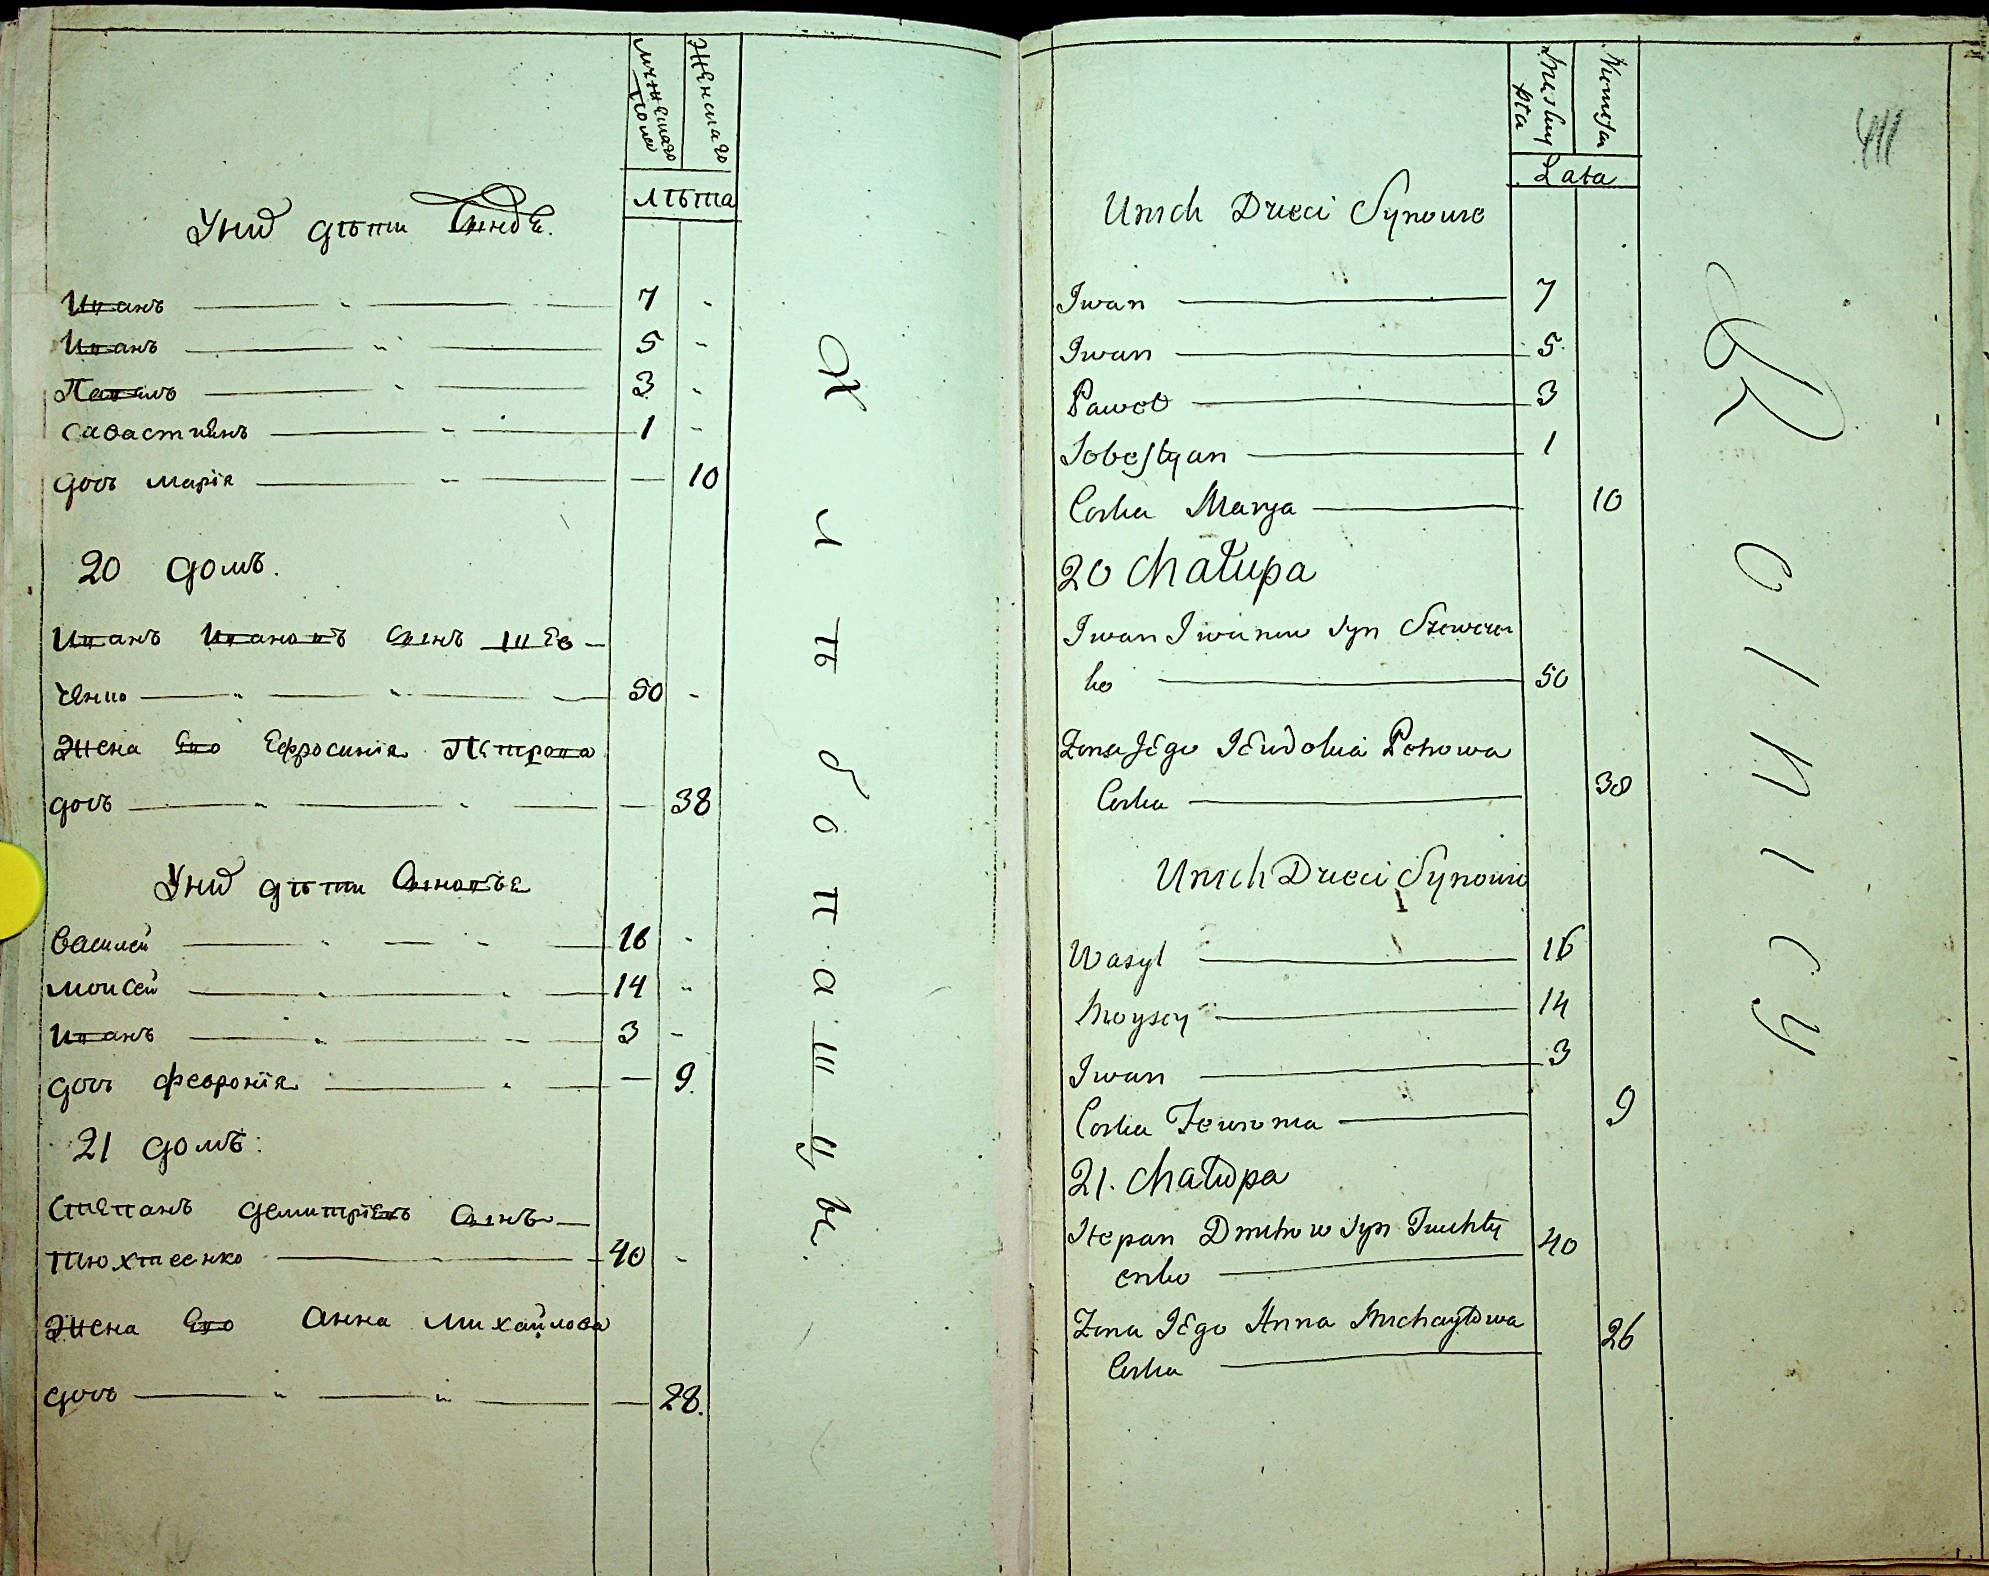 Мужескаго пола
Женскаго
лѣта
У них дѣти
Иванъ 7
Иванъ 5
Павелъ 3
Савастиянъ 1
дочь Марія 10
20 домъ.
Иванъ Ивановъ сынъ Шев-
ченко 50
Жена Его Ефросинія Петрова
дочь 38
У них дѣти Сыновьѣ
Василей 16
Моисей 14
Иванъ 3
дочь Февронія 9.
21 домъ:
Степанъ Демитріевъ сынъ
Тюхтеенко 40
Жена Его Анна Михайлова
дочь 28.
Хлѣбопашцы.
411
Męskiey płci
Niewieścia
Lata
U nich Dzieci Synowie
Iwan 7
Iwan 5
Paweł 3
Sobestyan 1
Corka Marya 10
20 Chałupa
Iwan Iwanow Syn Szewczen
ko 50
Zona Jego Petrowa
Corka 38
U nich Dzieci Synowie
Wasyl 16
Moysey 14
Iwan 3
Corka Fewronia 9
21. Chałupa
Stepan Dmitrow Syn Tiuchty
enko 40
Zona Jego Anna Michayłowa
Corka 26
Rolnicy